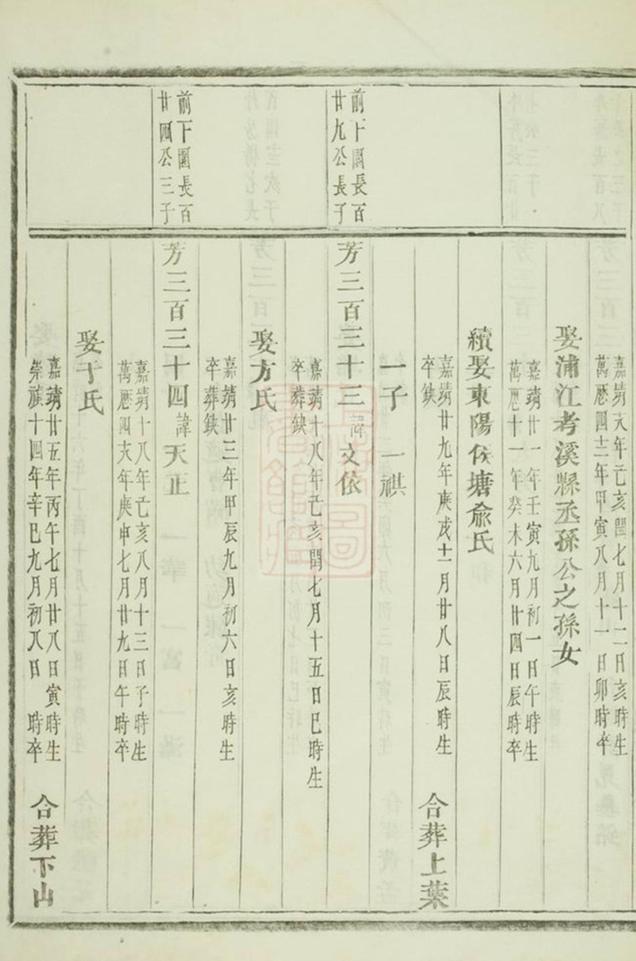 嘉靖十八年己亥閏七月十二日亥時生
萬曆四十二年甲寅八月十一日卯時卒
娶浦江孝溪縣丞孫公之孫女
嘉靖廿一年壬寅九月初一日午時生
萬曆十一年癸未六月廿四日辰時卒
續娶東陽塘俞氏
嘉靖廿九年庚戌十一月廿八日辰時生
卒缺
合葬上葉
一子 一祺
前下園長百
廿九公長子
芳三百三十三諱文依
嘉靖十八年己亥閏七月十五日巳時生
卒葬缺
娶方氏
嘉靖廿三年甲辰九月初六日亥時生
卒葬缺
前下園長百
廿四公三子
芳三百三十四諱天正
嘉靖十八年己亥八月十三日子時生
萬曆四十八年庚申七月廿九日午時卒
娶于氏
嘉靖廿五年丙午七月廿八日寅時生
崇禎十四年辛巳九月初八日時卒
合葬下山